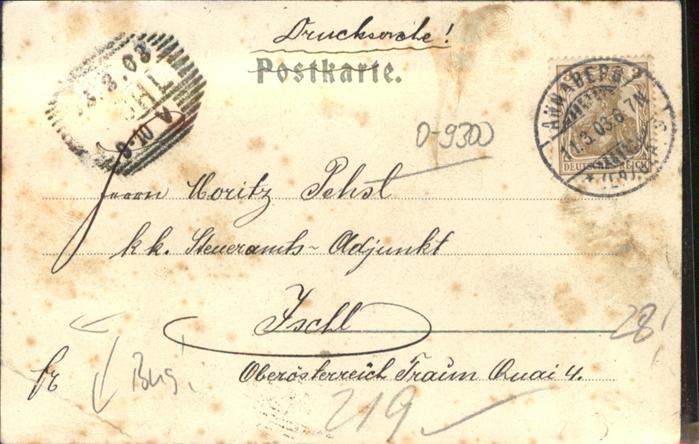 Drucksorte!
Postkarte.
3.03
8-10 V
ANNABERG 2
11.3.03.6-7N.
* (ERZGEB.) *
DEUTSCHES REICH
0-9300
Herrn Moritz Pehsl
k.k. Steueramts-Adjunkt
Ischl
28!
fr
Bug!
Oberösterreich Traun Quai 4.
219